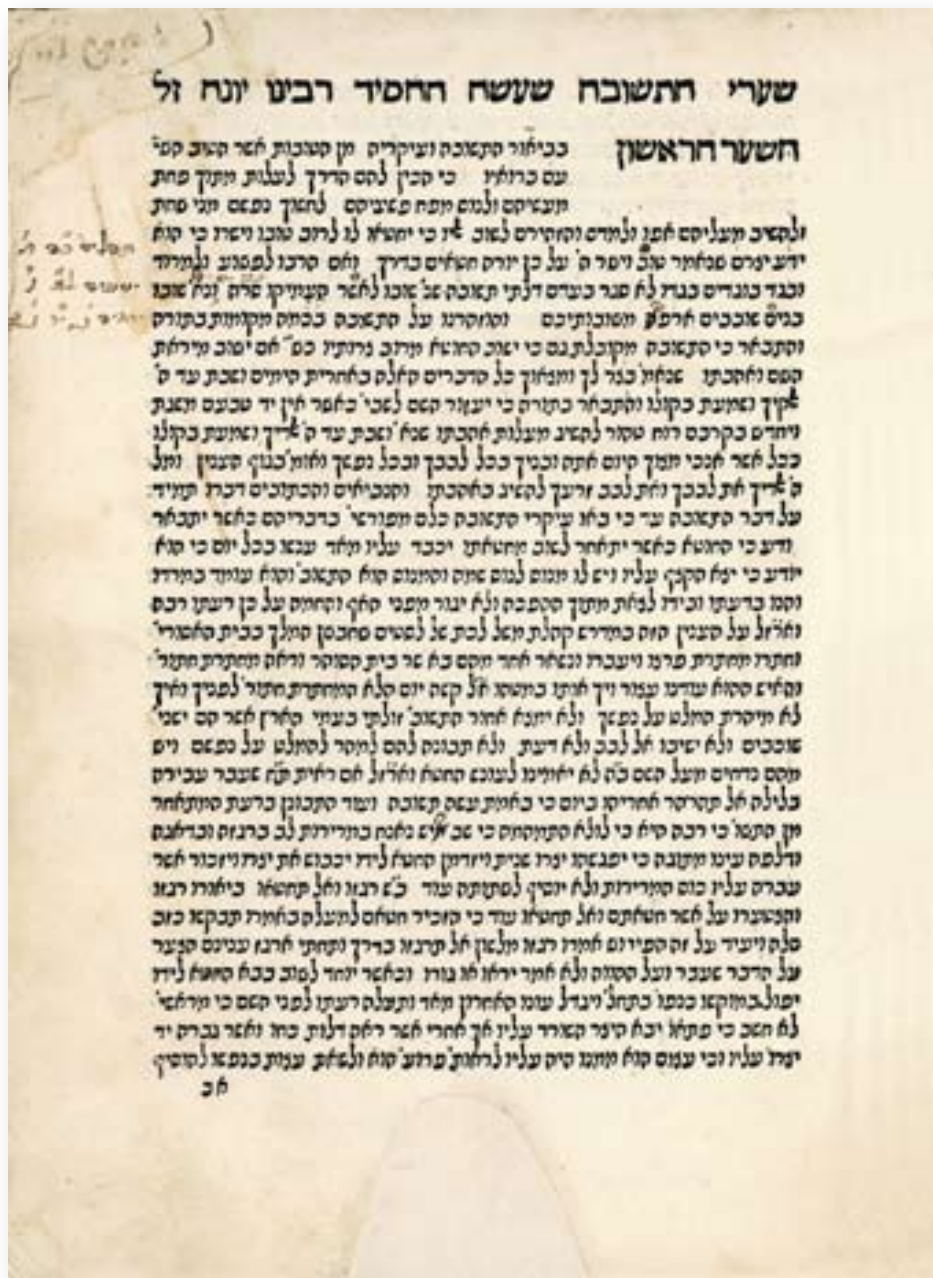 שערי התשובה שעשה החסיד רבינו יונה זל
השער הראשון
בביאור התשובה ועיקריה מן הטובות אשר הטיב הש״
עם ברואיו כי הכין להם הדרך לעלות מתוך פחת
מעשיהם ולנוס מפח פשעיהם לחשוך נפשם מני שחת
ולהשיב מעליהם אפו ולמדם והזהירם לשוב אליו כי יחטאו לו לרוב טובו וישרו כי הוא
ידע יצרם שנאמר טוב וישר ה' על כן יורה חטאים בדרך ואם הרבו לפשוע ולמרוד
ובגד בוגדים בגדו לא סגר בעדם דלתי תשובה שנ' שובו לאשר העמיקו סרה ונא' שובו
בנים שובבים ארפא משובותיכם והוזהרנו על התשובה בכמה מקומות בתורה
והתבאר כי התשובה מקובלת גם כי ישוב החוטא מרוב צרותיו כש״ אם ישוב מיראת
השם ואהבתו שנאמ' בצר לך ומצאוך כל הדברים האלה באחרית הימים ושבת עד ה'
אלקיך ושמעת בקולו והתבאר בתורה כי יעזור השם לשבי' כאשר אין יד טבעם משגת
ויחדש בקרבם רוח טהור להשיג מעלות אהבתו שנא' ושבת עד ה' אלקיך ושמעת בקולו
ככל אשר אנכי מצוך היום אתה ובניך בכל לבבך ובכל נפשך ואומ' בגוף הענין ומל
ה' אלקיך את לבבך ואת לבב זרעך להשיג באהבתו והנביאים והכתובים דברו תמיד
על דבר התשובה עד כי באו עיקרי התשובה כלם מפורשי' בדבריהם כאשר יתבאר
ודע כי החוטא כאשר יתאחר לשוב מחטאתו יכבד עליו מאד ענשו בכל יום כי הוא
יודע כי יצא הקצף עליו ויש לו מנוס לנוס שמה והמנוס הוא התשוב' והוא עומד במרדו
והנו ברעתו ובידו לצאת מתוך ההפכה ולא יגור מפני האף והחמה על כן רעתו רבה
ואר״זל על הענין הזה במדרש קהלת משל לכת של לסטים שחבשן המלך בבית האסורי'
וחתרו מחתרת פרצו ויעברו ונשאר אחד מהם בא שר בית הסוהר וראה מחתרת חתור'
והאיש ההוא עודנו עצור ויך אותו במטהו אל' קשה יום הלא המחתרת חתור' לפניך ואיך
לא מיהרת המלט על נפשך ולא ימצא אחור התשוב' זולתי בעמי הארץ אשר הם ישני'
שוכבים ולא ישיבו אל לבב ולא דעת ולא תבונה להם למהר להמלט על נפשם ויש
מהם נדחים מעל השם ב״ה לא יאמינו לעונש החטא ואר״זל אם ראית ת״ח שעבר עבירה
בלילה אל תהרהר אחריהו ביום כי באמת עשה תשובה ועוד התבונן ברעת המתאחר
מן התשו' כי רבה היא כי לולא התמהמה כי שב איש נאנח במרירות לב ברגזה ובדאגה
ודלפה עינו מתוגה כי יפגשהו יצרו שנית ויזדמן החטא לידו יכבוש את יצרו ויזכור אשר
עברה עליו כוס המרירות ולא יוסיף לשתותה עוד כ״ש רגזו ואל תחטאו ביאורו רגזו
והצטערו על אשר חטאתם ואל תחטאו עוד כי הזכיר חטאם למעלה באמרו תבקשו כזב
סלה ויעיד על זה הפירוש אמרו רגזו מלשון אל תרגזו בדרך ותחתי ארגז ענינם הצער
על הדבר שעבר ועל ההווה ולא אמר יראו או גורו וכאשר יוחד לשוב בבא החטא לידו
יפול במוקשו כנפו' בתחל' ויגדל עונו האחרון מאד ותעלה רעתו לפני השם כי מראשי'
לא חשב כי פתאו' יבא היצר השודד עליו אך אחרי אשר ראה דלות כחו ואשר גברה יד
יצרו עליו וכי עצום הוא ממנו היה עליו לראות' פרוע' הוא ולשאת עצות בנפשו להוסיף
אב